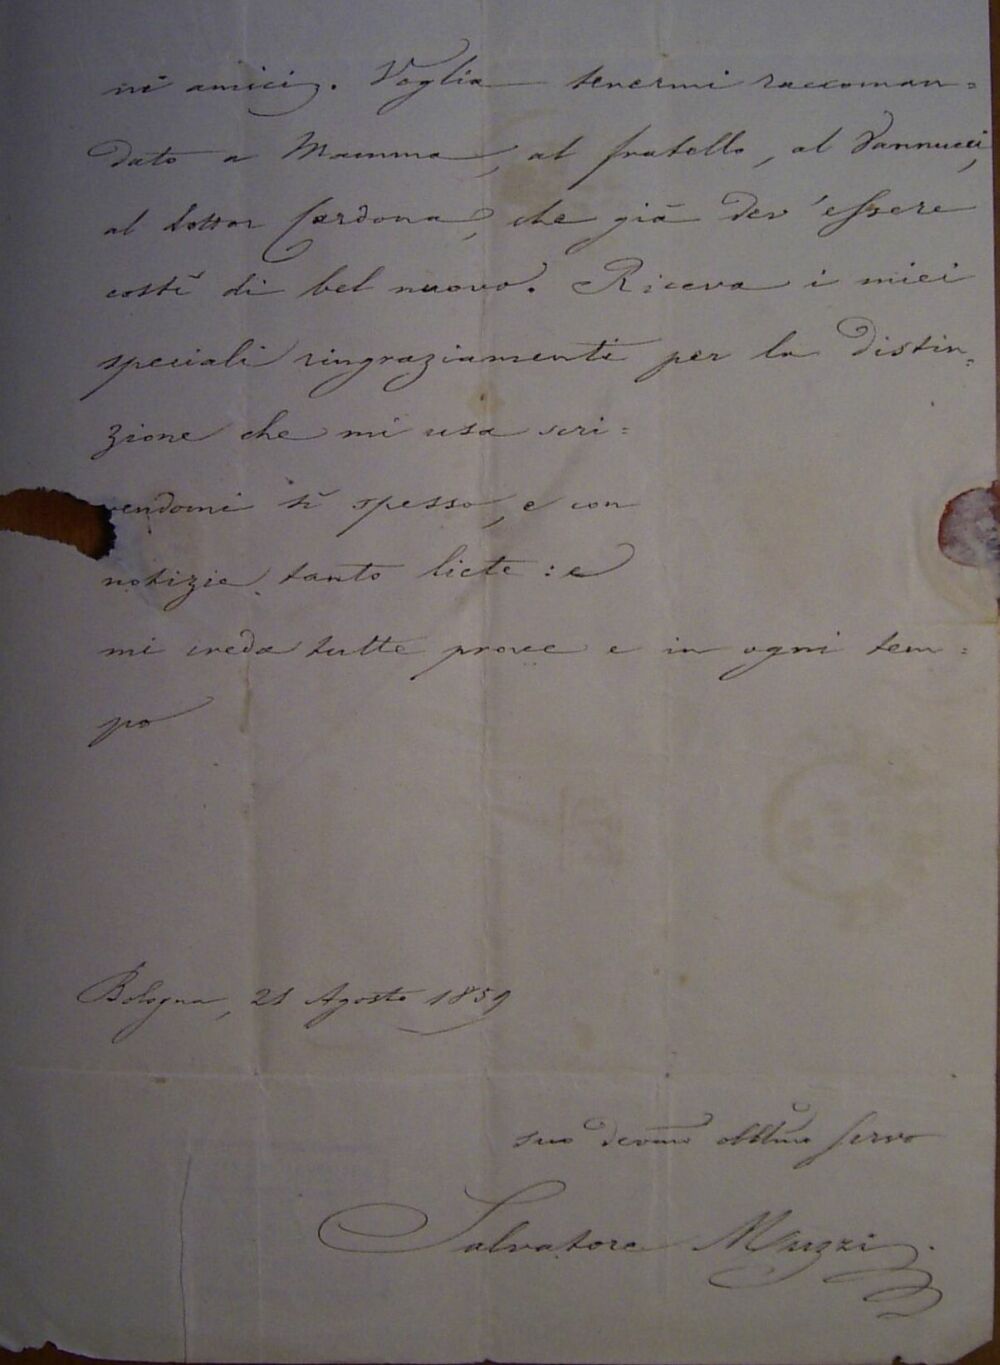 ni amici. Voglia tenermi raccoman=
dato a Mamma, al fratello, al Vannucci,
al dottor Cardona, che già dev'essere
costì di bel nuovo. Riceva i miei
speciali ringraziamenti per la distin=
zione che mi usa scri=
vendomi sì spesso, e con
notizie tanto liete: e
mi creda tutte prove e in ogni tem=
po
Bologna, 21 Agosto 1859
suo devmo obblmo servo
Salvatore Muzzi.